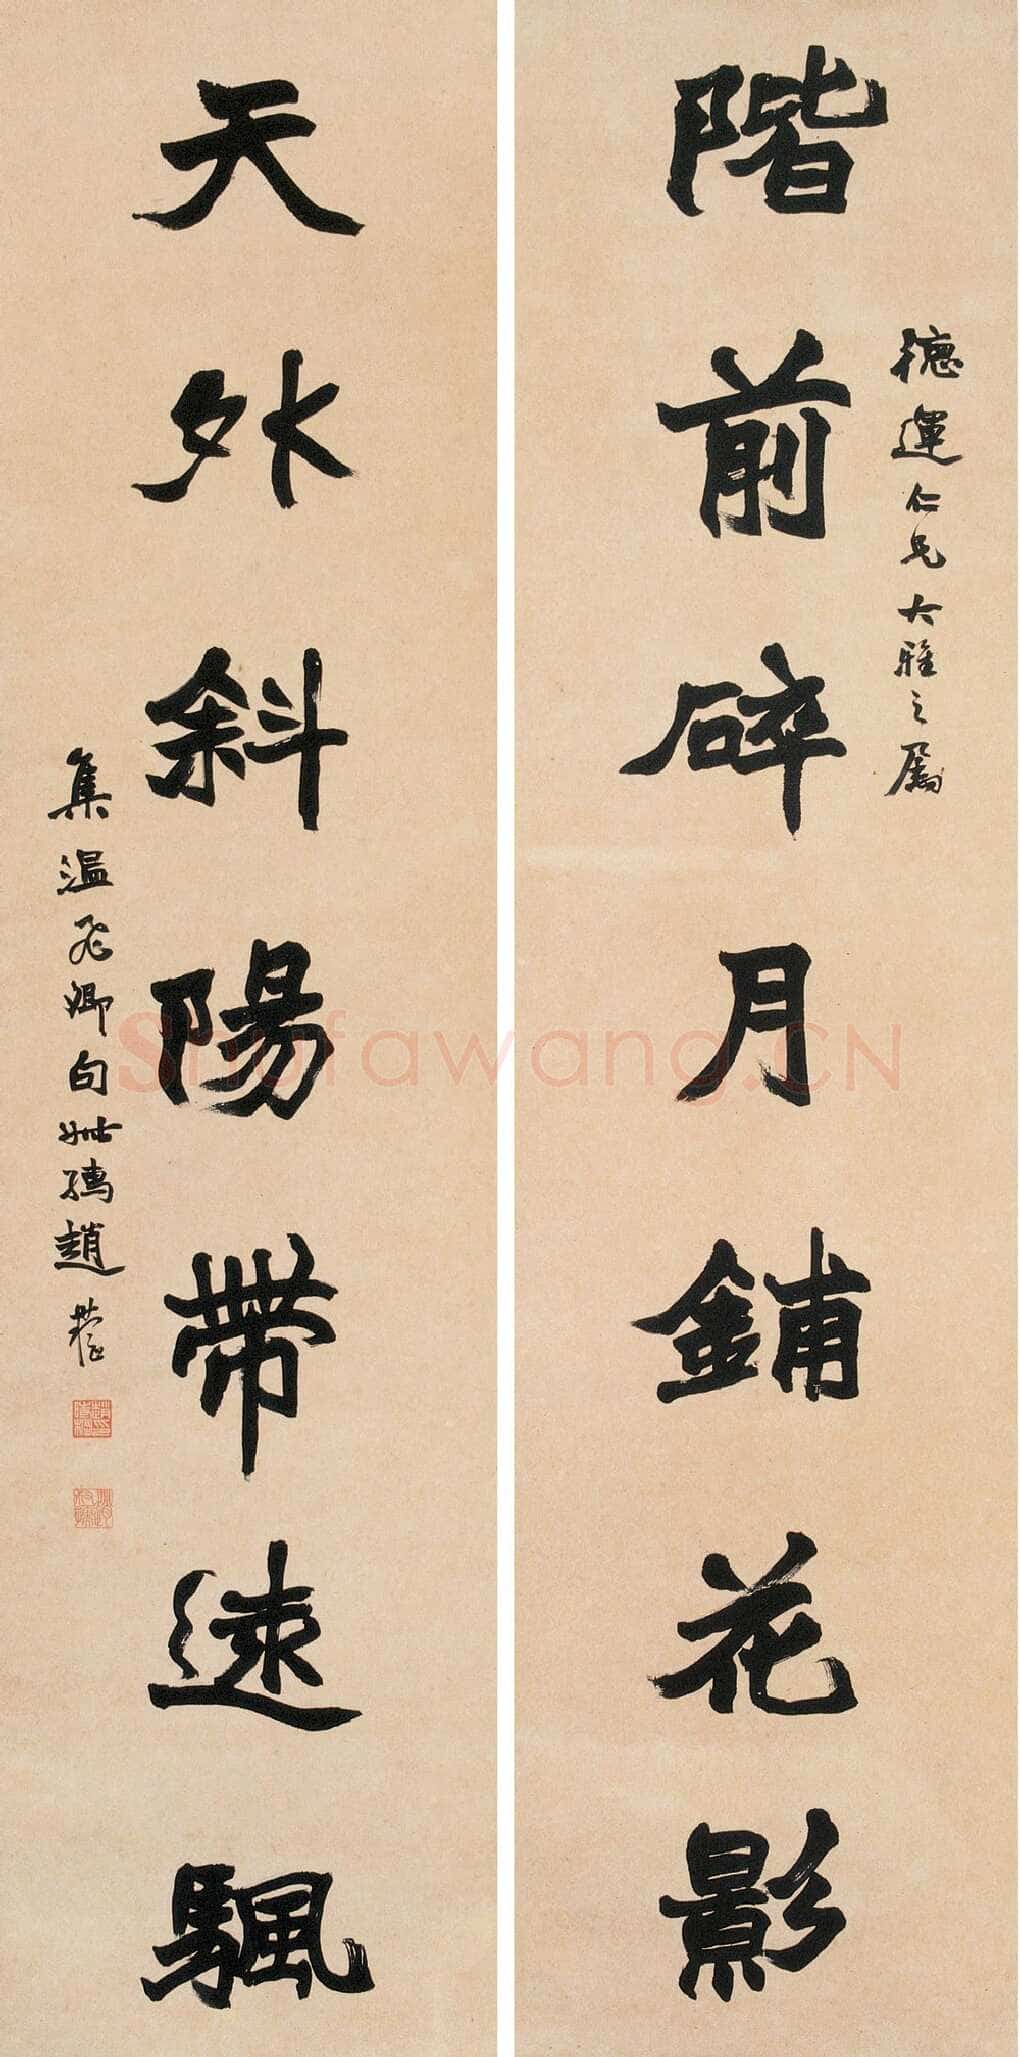 德運仁兄大雅之屬
階前碎月鋪花影
天外斜陽帶遠颿
集溫飛卿句叔孺趙時棡
Shufawang.CN